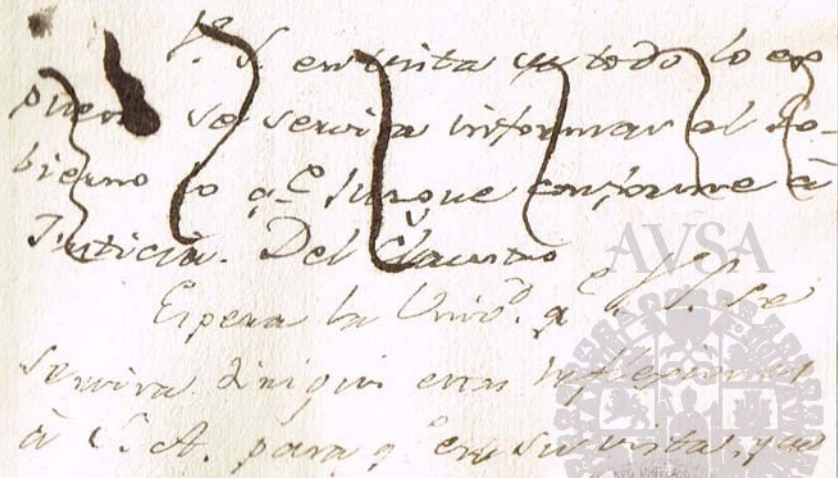 V. S. en vista de todo lo ex
puesto se servira informar al Go-
bierno lo q.e jusgue conforme â
Justicia. Del Claustro
Espera la Univ.d q.e V. S. se
servira dirigir estas reflexiones
â S. A. para q.e en su vista, que
AVSA